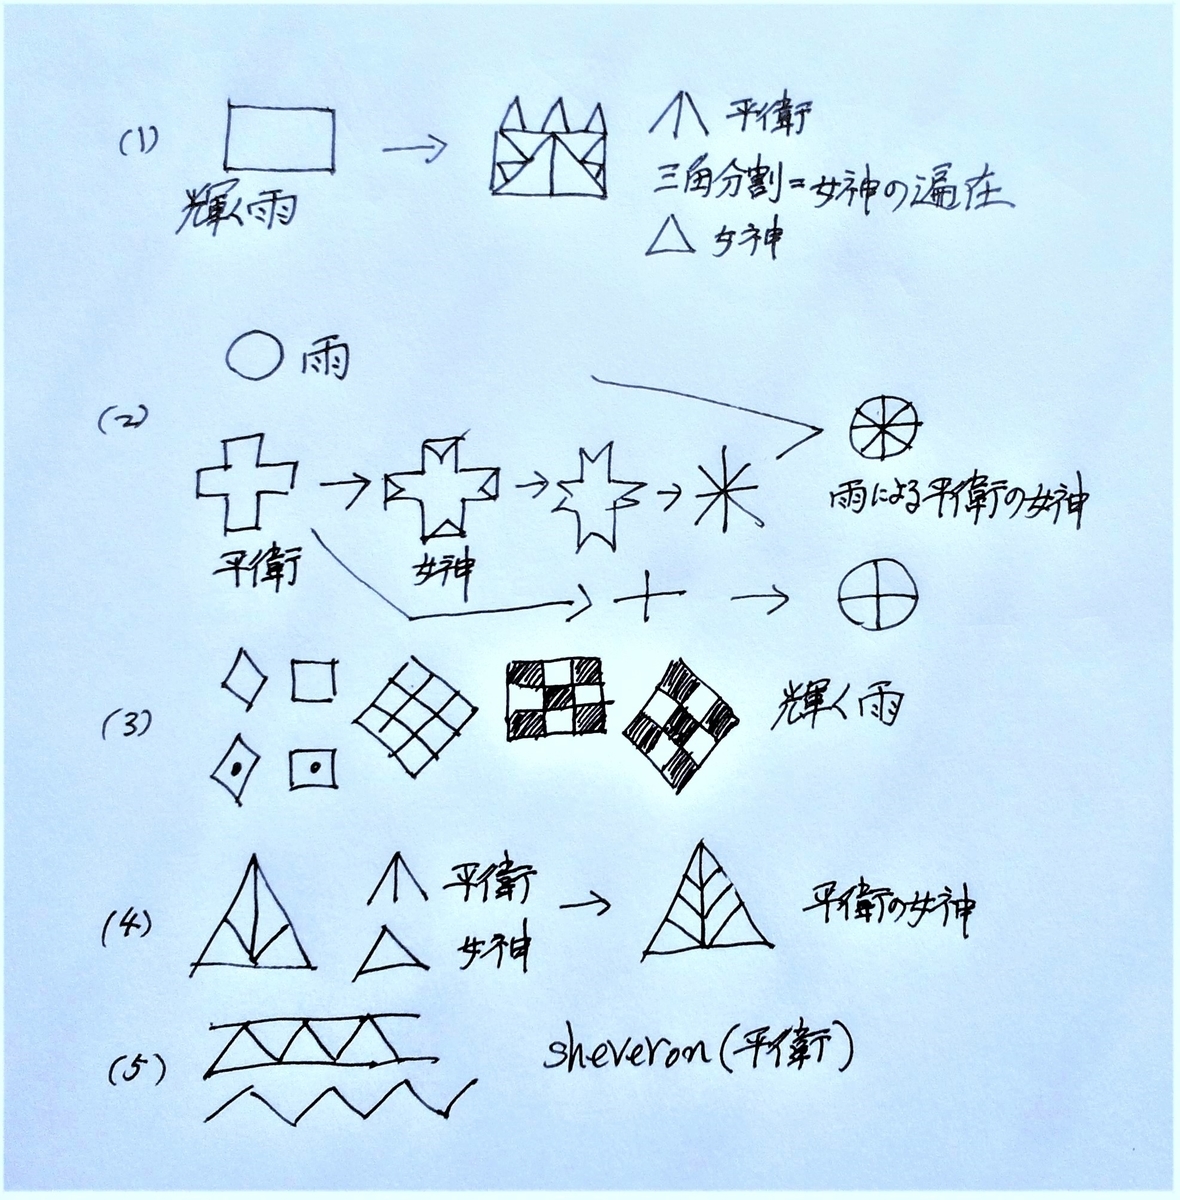 (1)
輝く雨
平衛
三角分割=女神の遍在
女神
雨
(2)
平衛
女神
雨による平衛の女神
(3)
輝く雨
(4)
平衛
女神
平衛の女神
(5)
sheveron(平衛)